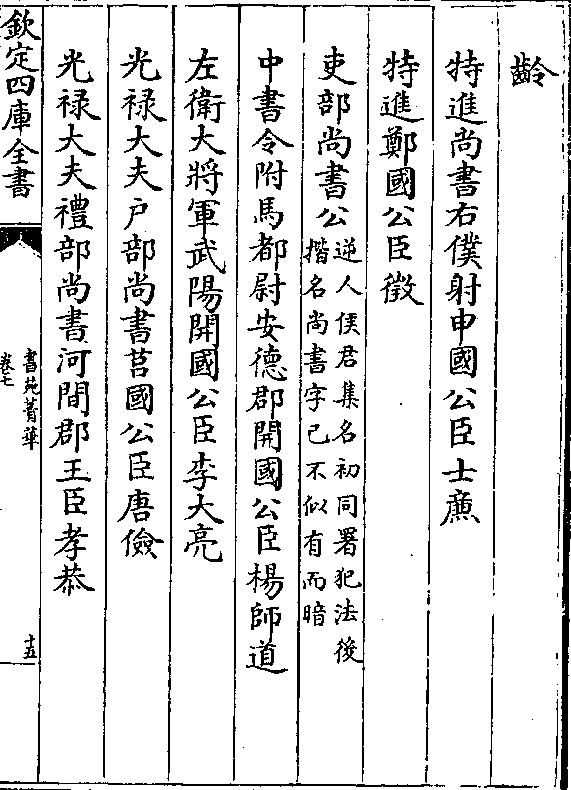 齡
特進尚書右僕射申國公臣士廉
特進鄭國公臣徵
吏部尚書公
逆人侯君集名初同署犯法後
揩名尚書字已不似有而暗
中書令附馬都尉安德郡開國公臣楊師道
左衛大將軍武陽開國公臣李大亮
光禄大夫户部尚書莒國公臣唐儉
光禄大夫禮部尚書河間郡王臣孝恭
欽定四庫全書
書苑菁華
卷七
十五